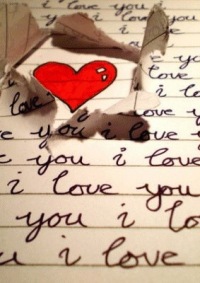 i love you
i love you
you
love
i lo
love
love y
you i love
e you i love
i love you
you i lo
u i love